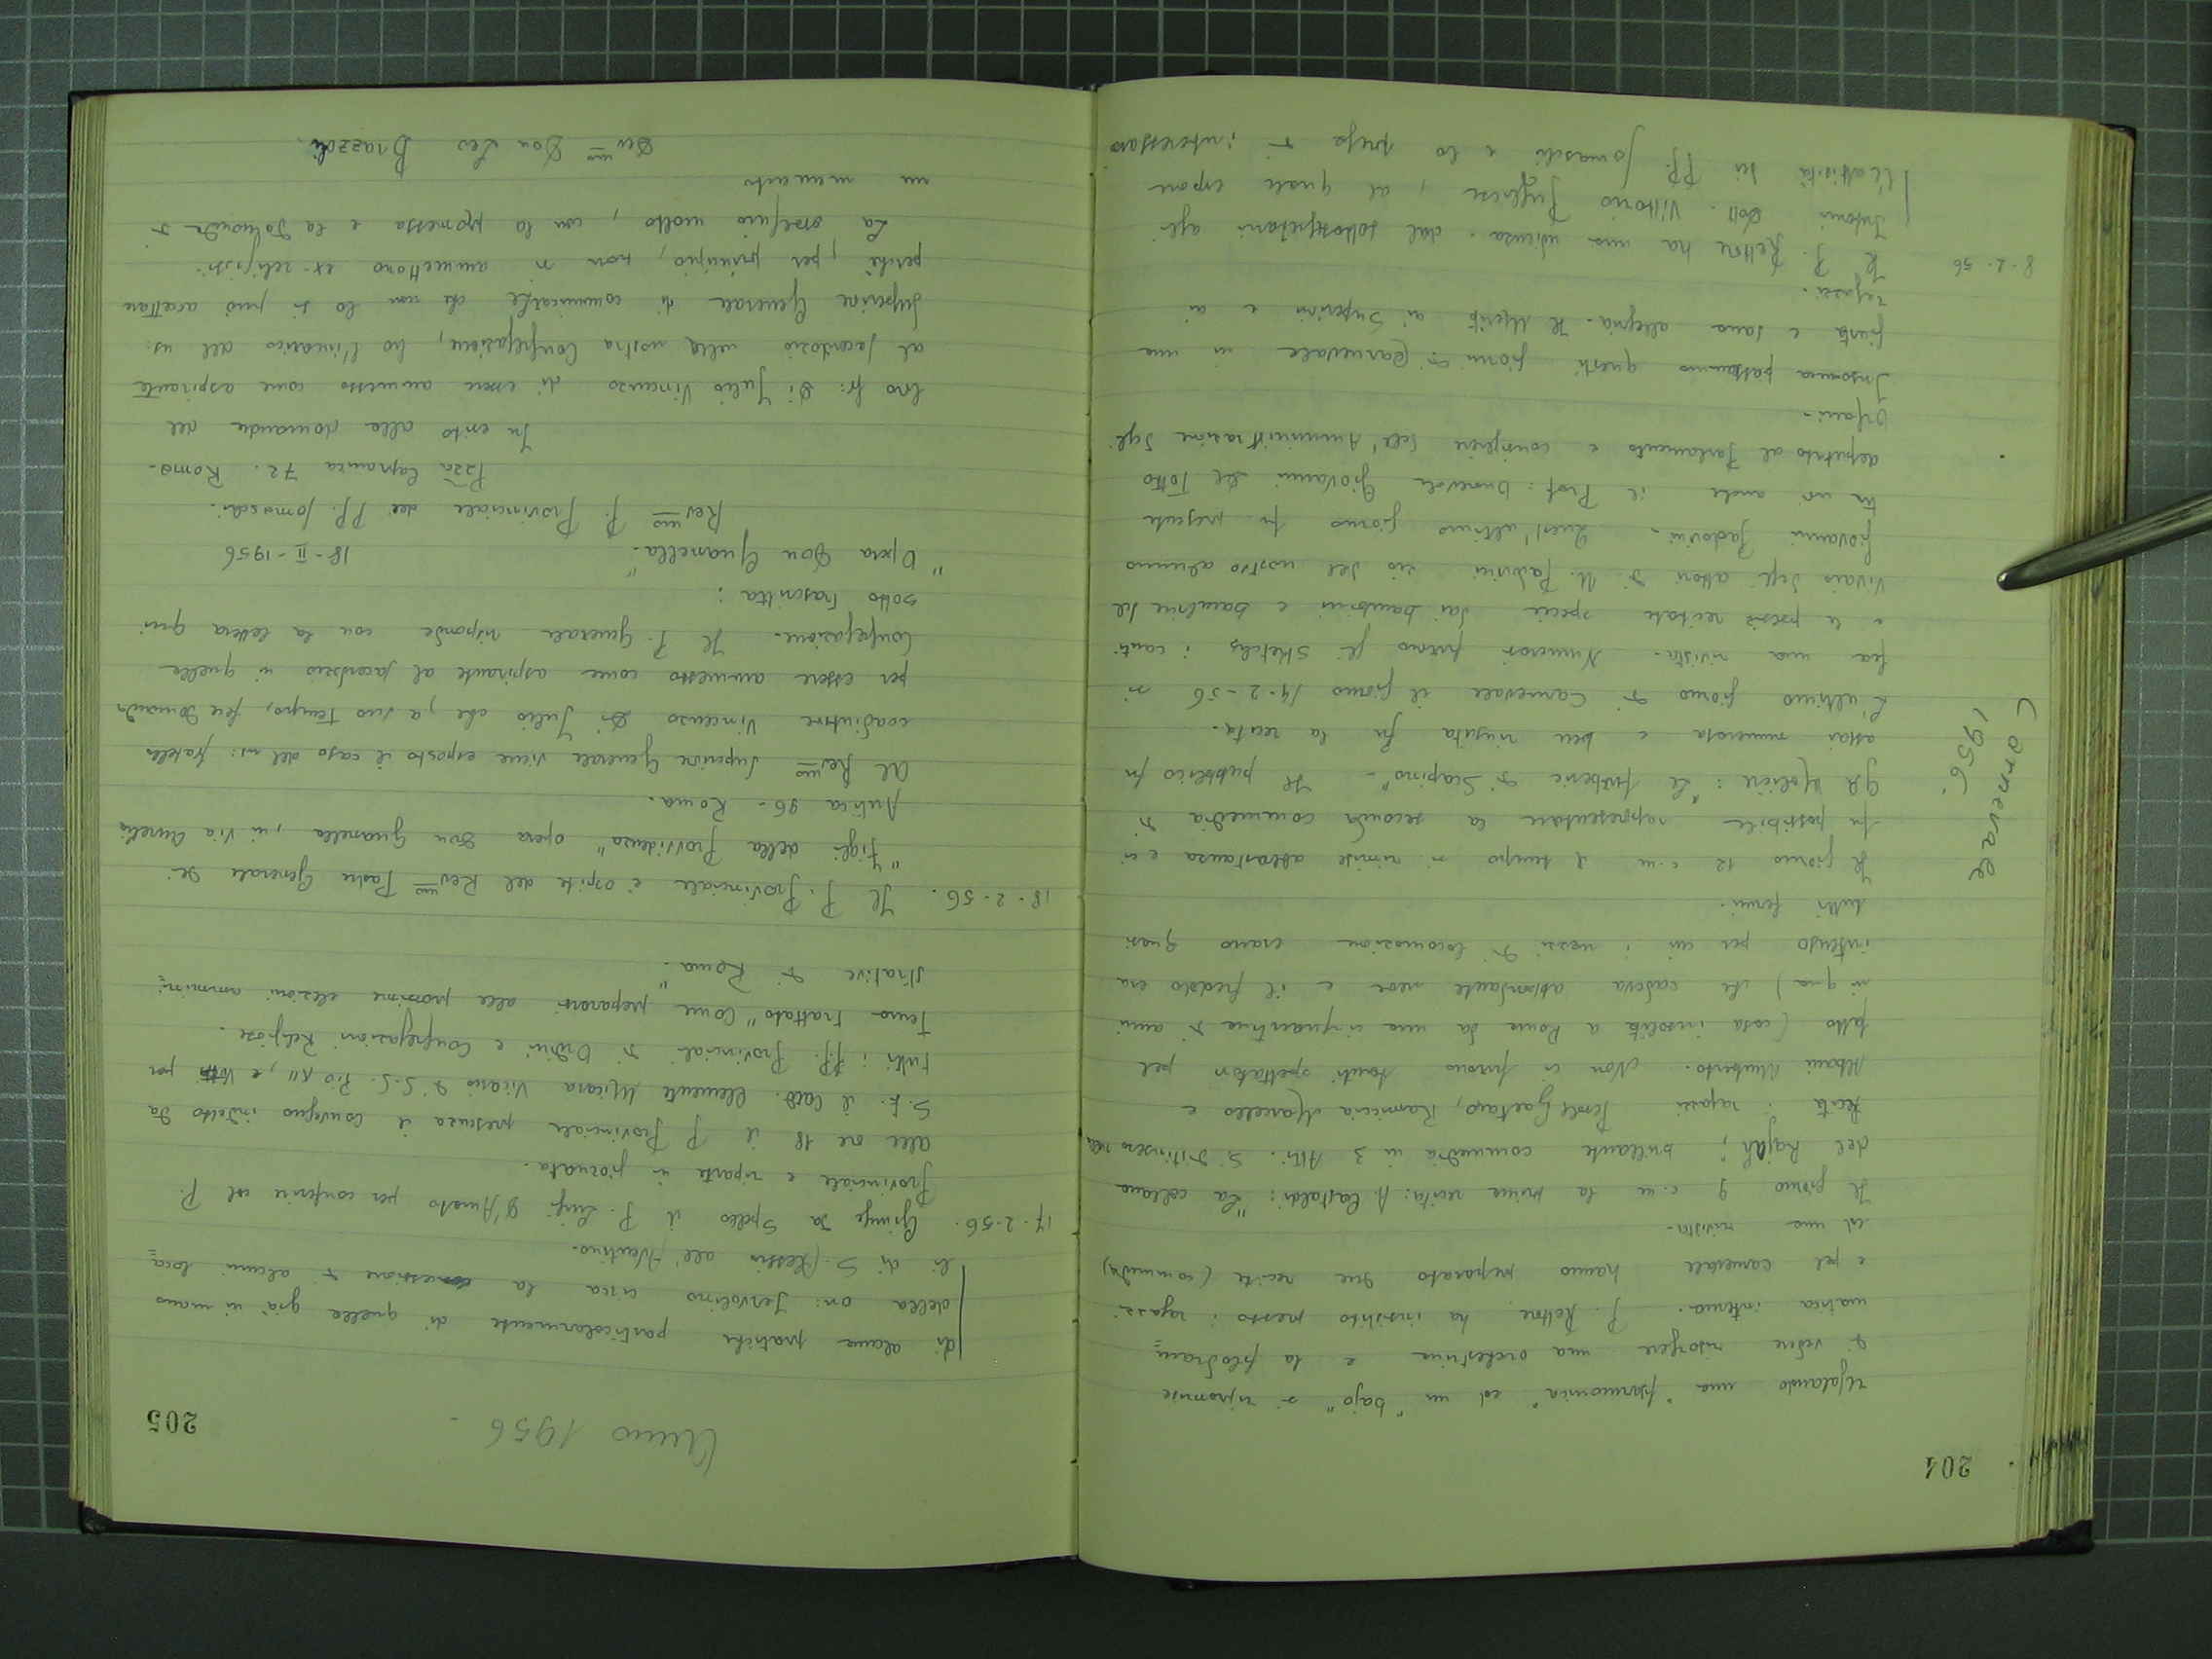 204
regalando una "farmonica" ed un "bajo" si ripromise
di vedere risorgere una orchestrina e la filodram=
matica interna. P. Rettore ha insistito presso i ragazzi
e pel carnevale hanno preparato due recite (commedia)
ed una rivista.
Il giorno 9 c.m. la prima recita: A. Castaldi: "La collana
del Rajah", brillante commedia in 3 Atti. Si distinsero nella
Recita i ragazzi Gaetano, Ramiccia Marcello e
Albani Umberto. Non ci furono tanti spettatori pel
fatto (cosa insolita a Roma da una cinquantina di anni
in qua) che cadeva abbondante neve e il freddo era
intenso per cui i mezzi di locomozione erano quasi
tutti fermi.
Carnevale
1956
Il giorno 12 c.m. il tempo si rimise abbastanza e ci
fu possibile rappresentare la seconda commedia di
Molière: "Le furberie di Scapino". Il pubblico fu
assai numeroso e ben riuscita fu la recita.
L'ultimo giorno di Carnevale il giorno 14-2-56 si
fea una rivista. Numerosi furono gli sketches i canti
e le poesie recitate specie dai bambini e bambine del
Vivaio degli attori di M. Padovini zio del nostro alunno
Giovanni Padovini. Quest'ultimo giorno fu presente
tra noi anche il Prof. Onorevole Giovanni Del Totto
deputato al Parlamento e consigliere dell'Amministrazione degli
Orfani.
Insomma passammo questi giorni di Carnevale in una
giusta e sana allegria. Il Merito ai Superiori e ai
ragazzi.
8-2-56 Il P. Rettore ha una udienza dal sottosegretario agli
Interni Dott. Vittorio Pugliese, al quale espone
l'attività dei PP. Somaschi e lo prega di interessarsi
Anno 1956.
205
di alcune pratiche particolarmente di quelle già in mano
della on: Jervolino circa la concessione di alcuni loca=
li di S. Alessio all'Aventino.
17-2-56. Giunge da Spello il P. Luigi D'Amato per conferire col P.
Provinciale e riparte in giornata.
Alle ore 18 il P. Provinciale presenzia il convegno indetto da
S.E. il Card. Clemente Micara Vicario di S.S. Pio XII, e per
tutti i PP. Provinciali di Ordini e Congregazioni Religiose.
Tema trattato "Come prepararsi alle prossime elezioni ammini=
strative di Roma".
18-2-56. Il P. Provinciale è ospite del Rev.mo Padre Generale dei
"Figli della Provvidenza" opera Don Guanella, in via Aurelia
Antica 96 - Roma.
Al Rev.mo Superiore Generale viene esposto il caso del ns: fratello
coadiutore Vincenzo Di Julio che, a suo tempo, fece domanda
per essere ammesso come aspirante al sacerdozio in quella
Congregazione. Il P. Generale risponde con la lettera qui
sotto trascritta:
"Opera Don Guanella". 18-II-1956
Rev.mo P. Provinciale dei PP. Somaschi.
P.zza Capranica 72. Roma.
In esito alla domanda del
loro fr: Di Julio Vincenzo di essere ammesso come aspirante
al sacerdozio nella nostra Congregazione, ho l'incarico del ns:
Superiore Generale di comunicarle che non lo si può accettare
perché, per principio, non si ammettono ex-religiosi.
La ossequio molto, con la promessa e la domanda di
un memento
Dev.mo Don Leo Brazzoli.